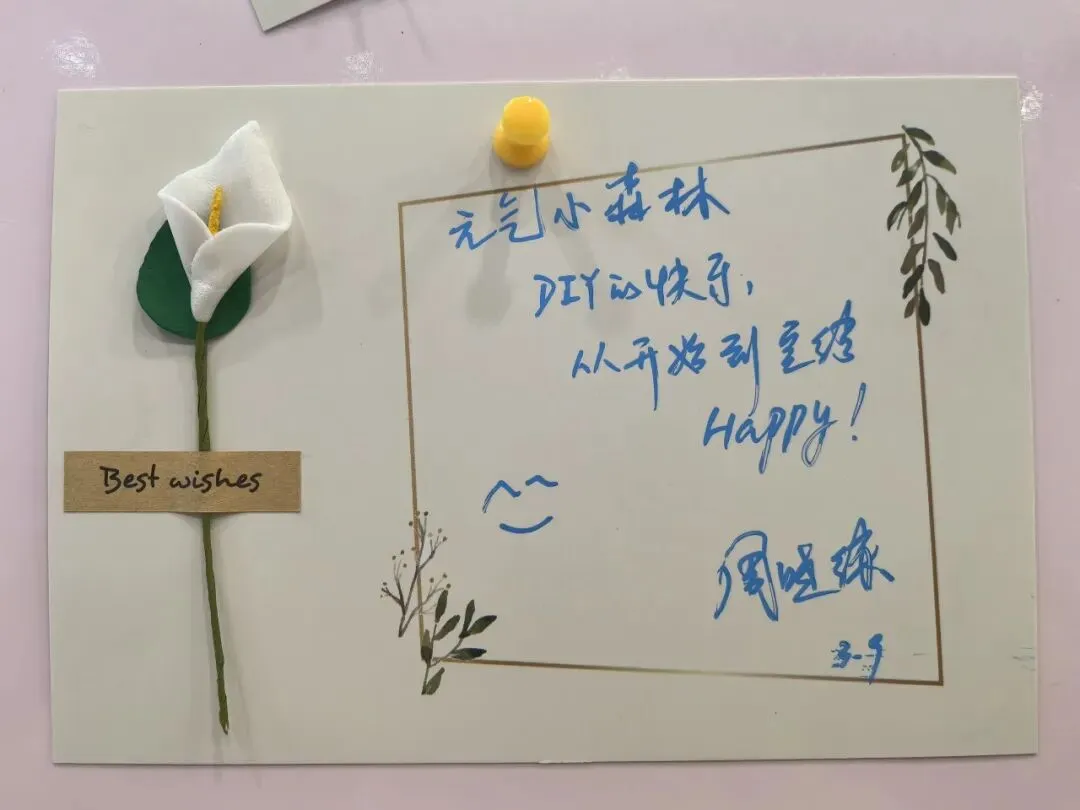 Best wishes
元气小森林
DIY的快乐,
从开始到至终
Happy!
周
3-9